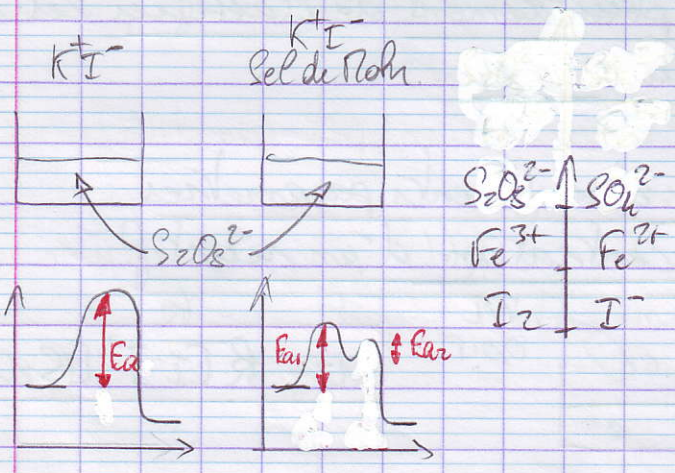 K⁺I⁻
K⁺I⁻
Sel de Mohr
S₂O₈²⁻
S₂O₈²⁻ SO₄²⁻
Fe³⁺ Fe²⁺
I₂ I⁻
Ea
Ea₁ Ea₂